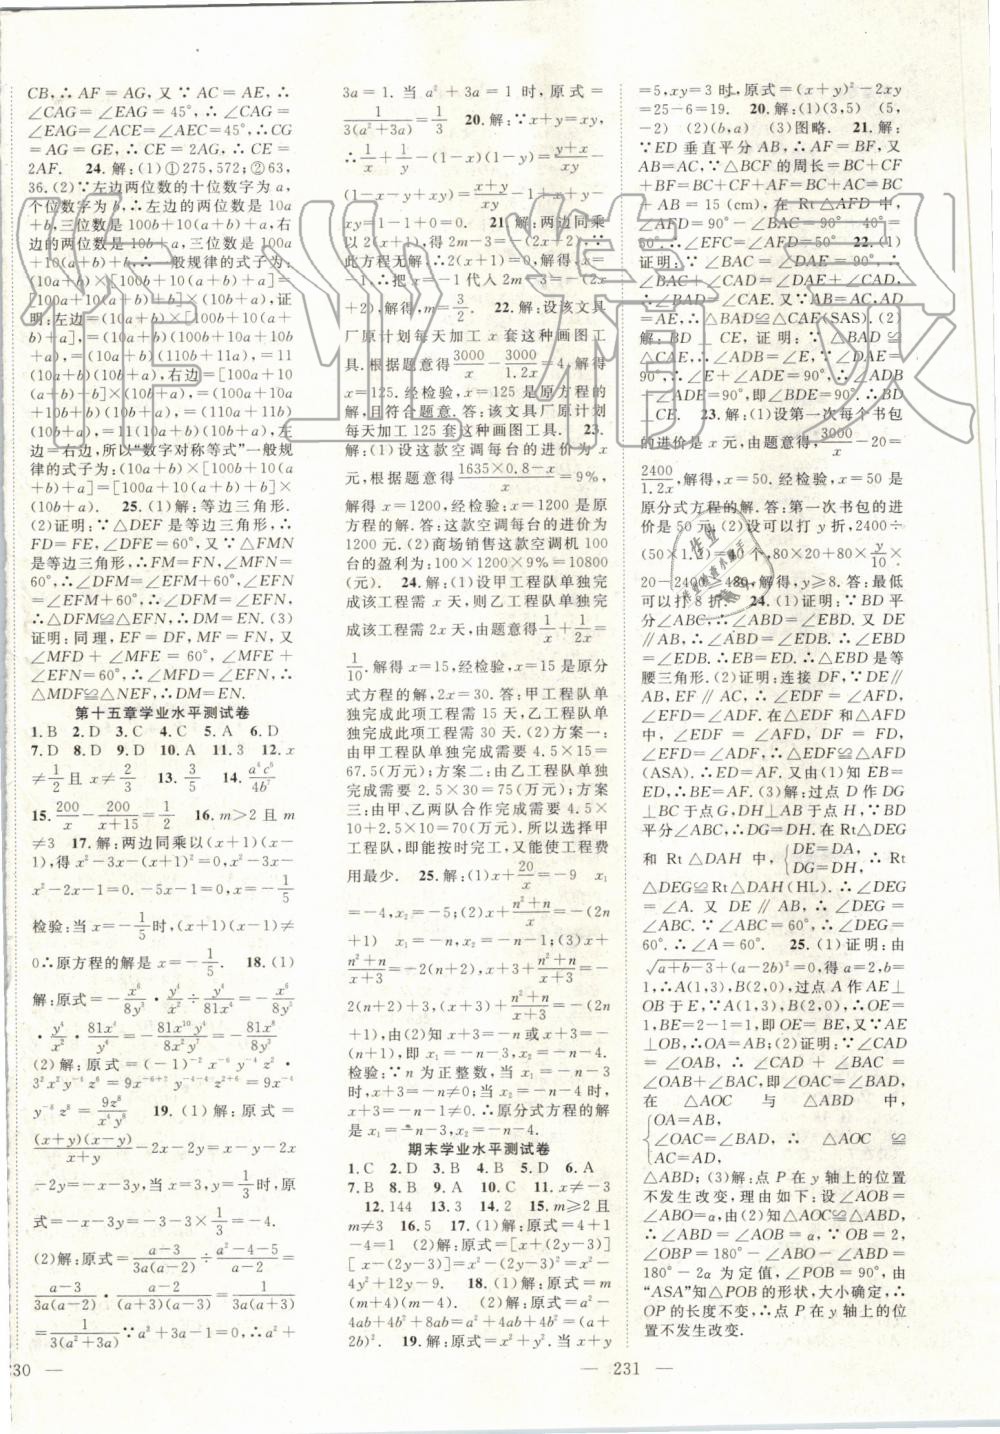 CB,∴AF=AG,又∵AC=AE,∴
∠CAG=∠EAG=45°,∴∠CAG=
∠EAG=∠ACE=∠AEC=45°,∴CG
=AG=GE,∴CE=2AG,∴CE=
2AF. 24.解:(1)①275,572;②63,
36.(2)∵左边两位数的十位数字为a,
个位数字为b,∴左边的两位数是10a
+b,三位数是100b+10(a+b)+a,右
边的两位数是10b+a,三位数是100a
+10(a+b)+b,∴一般规律的式子为:
(10a+b)×[100b+10(a+b)+a]=
[100a+10(a+b)+b]×(10b+a),证
明:左边=(10a+b)×[100b+10(a+
b)+a],=(10a+b)(100b+10a+10b
+a),=(10a+b)(110b+11a),=11
(10a+b)(10b+a),右边=[100a+10
(a+b)+b]×(10b+a),=(100a+10a
+10b+b)(10b+a),=(110a+11b)
(10b+a),=11(10a+b)(10b+a),左
边=右边,所以“数字对称等式”一般规
律的式子为:(10a+b)×[100b+10(a
+b)+a]=[100a+10(a+b)+b]×
(10b+a). 25.(1)解:等边三角形,
(2)证明:∵△DEF是等边三角形,∴
FD=FE,∠DFE=60°,∵△FMN
是等边三角形,∴FM=FN,∠MFN
=60°,∴∠DFM+∠MFE=60°,
∠EFM+60°,∴∠DFM=∠EFN,
∴△DFM≌△EFN,∴DM=EN.(3)
证明:同理,EF=DF,MF=FN,又
∠MFD+∠MFE=60°,∠MFE+
∠EFN=60°,∴∠MFD=∠EFN,∴
△MDF≌△NEF,∴DM=EN.
第十五章学业水平测试卷
1.B 2.D 3.C 4.C 5.A 6.D
7.D 8.D 9.D 10.A 11.3 12.x
≠1/2且x≠2/3 13.3/5 14.a⁴c⁶/4b⁷
15.200/x-200/(x+15)=1/2 16.m>2且m
≠3 17.解:两边同乘以(x+1)(x-
1),得x²-3x-(x+1)(x-1)=0.x²-3x-
x²-2x-1=0.-5x-1=0.x=-1/5
检验:当x=-1/5时,(x+1)(x-1)≠
0∴原方程的解是x=-1/5. 18.(1)
解:原式=-x⁶/8y³·y⁴/x²÷y⁴/81x⁴=-x⁶/8y³
·y⁴/x²·81x⁴/y⁴=-81x¹⁰y⁴/8x²y⁷=-81x⁸/8y³
(2)解:原式=(-1)⁻²x⁻⁶y⁻⁴z⁶·
3²x²y⁻⁴z⁶=9x⁻⁶⁺²y⁻⁴⁻⁴z²⁺⁶=9x⁻⁴
y⁻⁸z⁸=9z⁸/x⁴y⁸ 19.(1)解:原式=
(x+y)(x-y)/(x+y)-2x-2x-y=x-y-4x
-y=-x-3y,当x=y=1/3时,原
式=-x-3y=-3-3×1/3=-4.
(2)解:原式=(a-3)/3a(a-2)÷(a²-4-5)/(a-2)
=(a-3)/3a(a-2)·(a-2)/(a+3)(a-3)=1/3a(a+3)
=1/3(a²+3a)∵a²+3a-1=0,∴a²+
30 —
3a=1.当a²+3a=1时,原式=
1/3(a²+3a)=1/3 20.解:∵x+y=xy,
∴1/x+1/y-(1-x)(1-y)=(y+x)/xy-
(1-x-y+xy)=(x+y)/xy-1+x+y-
xy=1-1+0=0. 21.解:两边同乘
以2(x+1),得2m-3=-(2x+2),∵
此方程无解,∴2(x+1)=0,解得x=
-1,∴把x=-1代入2m-3=-(2x
+2),解得,m=3/2. 22.解:设该文具
厂原计划每天加工x套这种画图工
具.根据题意得3000/x-3000/1.2x=4,解得
x=125.经检验,x=125是原方程的
解,且符合题意.答:该文具厂原计划
每天加工125套这种画图工具. 23.
解:(1)设这款空调每台的进价为x
元,根据题意得(1635×0.8-x)/x=9%,
解得x=1200,经检验:x=1200是原
方程的解.答:这款空调每台的进价为1200
元.(2)商场销售这款空调机100
台的盈利为:100×1200×9%=10800
(元). 24.解:(1)设甲工程队单独完
成该工程需x天,则乙工程队单独完
成该工程需2x天,由题意得1/x+1/2x=
1/10.解得x=15,经检验,x=15是原分
式方程的解,2x=30.答:甲工程队单
独完成此项工程需15天,乙工程队单
独完成此项工程需30天.(2)方案一:
由甲工程队单独完成需要4.5×15=
67.5(万元);方案二:由乙工程队单独
完成需要2.5×30=75(万元);方案
三:由甲、乙两队合作完成需要4.5×
10+2.5×10=70(万元).所以选择甲
工程队,即能按时完工,又能使工程费
用最少. 25.解:(1)x+20/x=-9 x₁
=-4,x₂=-5;(2)x+(n²+n)/x=-(2n
+1) x₁=-n,x₂=-n-1;(3)x+
(n²+n)/(x+3)=-2(n+2)x+3+(n²+n)/(x+3)=-
2(n+2)+3,(x+3)+(n²+n)/(x+3)=-(2n
+1),由(2)知x+3=-n或x+3=-
(n+1),即x₁=-n-3,x₂=-n-4.
检验:∵n为正整数,当x₁=-n-3
时,x+3=-n≠0;当x₂=-n-4时,
x+3=-n-1≠0.∴原分式方程的解
是x₁=-n-3,x₂=-n-4.
期末学业水平测试卷
1.C 2.D 3.B 4.B 5.D 6.A
7.B 8.B 9.A 10.C 11.x≠-3
12.144 13.3 14.2 15.m≥2且
m≠3 16.5 17.(1)解:原式=4+1
-4=1 (2)解:原式=[x+(2y-3)]
[x-(2y-3)]=x²-(2y-3)²=x²-
4y²+12y-9. 18.(1)解:原式=m
(m+4)(m-4).(2)解:原式=a²-
4ab+4b²+8ab=a²+4ab+4b²=(a+
2b)². 19.解:原式=x²+y².当x+y
=5,xy=3时,原式=(x+y)²-2xy
=25-6=19. 20.解:(1)(3,5) (5,
-2) (2)(b,a) (3)图略. 21.解:
∵ED垂直平分AB,∴AF=BF,又
AB=AC,∵△BCF的周长=BC+CF
+BF=BC+CF+AF=BC+AC=
BC+AB=15(cm),在Rt△AFD中,
∠AFD=90°-∠BAC=90°-40°=
50°,∴∠EFC=∠AFD=50°. 22.(1)
证明:∵∠BAC=∠DAE=90°,∴
∠BAC+∠CAD=∠DAE+∠CAD,
∴∠BAD=∠CAE.又AB=AC,AD=
AE,∴△BAD≌△CAE(SAS).(2)
解:BD⊥CE,证明:∵△BAD≌
△CAE,∴∠ADB=∠E.∵∠DAE=
90°,∴∠E+∠ADE=90°,∴∠ADB
+∠ADE=90°,即∠BDE=90°.∴BD
⊥CE. 23.解:(1)设第一次每个书包
的进价是x元,由题意得,3000/x-20=
2400/1.2x,解得,x=50.经检验,x=50是
原分式方程的解.答:第一次书包的进
价是50元.(2)设可以打y折,2400÷
(50×1.2)=40个,80×20+80×y/10×
20-2400≥480,解得,y≥8.答:最低
可以打8折. 24.(1)证明:∵BD平
分∠ABC,∴∠ABD=∠DBC.又DE
∥AB,∴∠ABD=∠EDB.∴∠EBD
=∠EDB.∴EB=ED.∴△EBD是等
腰三角形.(2)证明:连接DF,∵DE∥
AB,EF∥AC,∴∠EDF=∠AFD,
∠EFD=∠ADF.在△EDF和△AFD
中,∠EDF=∠AFD,DF=FD,
∠EFD=∠ADF,∴△EDF≌△AFD
(ASA).∴ED=AF.又由(1)知EB=
ED,∴EB=AF.(3)解:过点D作DG
⊥BC于点G,DH⊥AB于点H,∵BD
平分∠ABC,∴DG=DH.在Rt△DEG
和Rt△DAH中,{DE=DA,DG=DH,∴Rt
△DEG≌Rt△DAH(HL).∴∠DEG
=∠A.又DE∥AB,∴∠DEG=
∠ABC.∵∠ABC=60°,∴∠DEG=
60°.∴∠A=60°. 25.(1)证明:由
√(a+b-3)+(a-2b)²=0得a=2,b=
1,∴A(1,3),B(2,0),过点A作AE⊥
OB于E,∵A(1,3),B(2,0),∴OE=
1,BE=2-1=1,即OE=BE,又∵AE
⊥OB,∴OA=AB;(2)证明:∵∠CAD
=∠OAB,∴∠CAD+∠BAC=
∠OAB+∠BAC,即∠OAC=∠BAD,
在△AOC与△ABD中,
{OA=AB,
∠OAC=∠BAD,∴△AOC≌
AC=AD,
△ABD;(3)解:点P在y轴上的位置
不发生改变,理由如下:设∠AOB=
∠ABO=α,由(2)知△AOC≌△ABD,
∴∠ABD=∠AOB=α,∵OB=2,
∠OBP=180°-∠ABO-∠ABD=
180°-2α为定值,∠POB=90°,由
“ASA”知△POB的形状,大小确定,∴
OP的长度不变,∴点P在y轴上的位
置不发生改变.
— 231 —